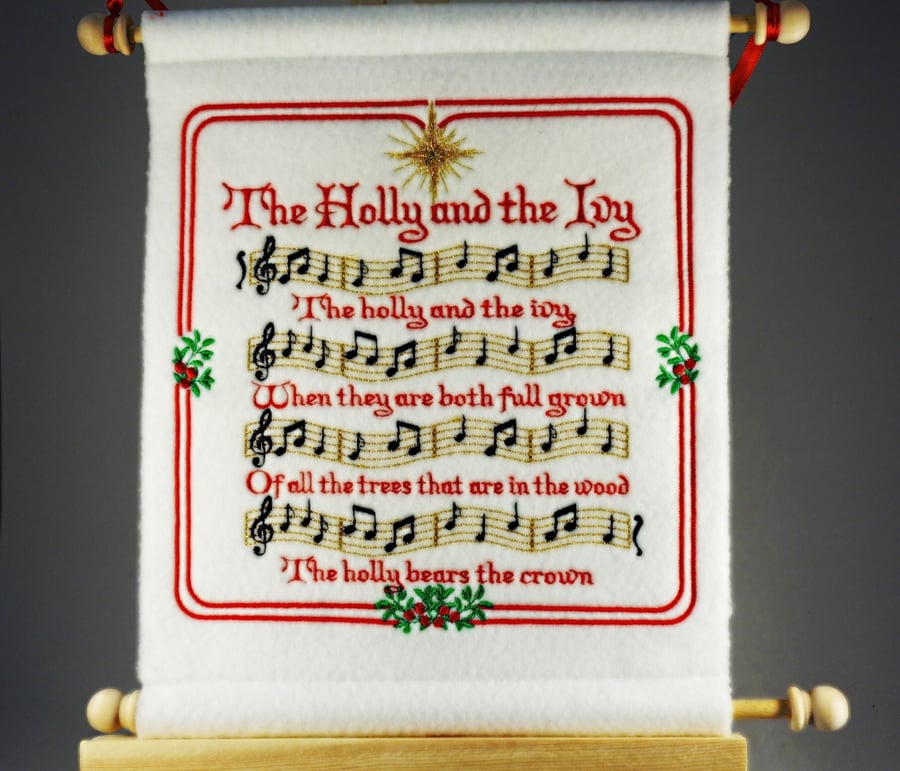 The Holly and the Ivy
The holly and the ivy,
When they are both full grown
Of all the trees that are in the wood
The holly bears the crown